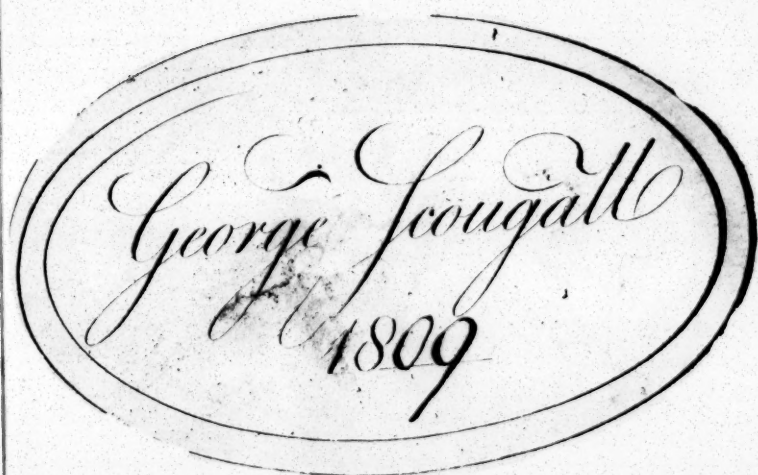 George Scougall
1809